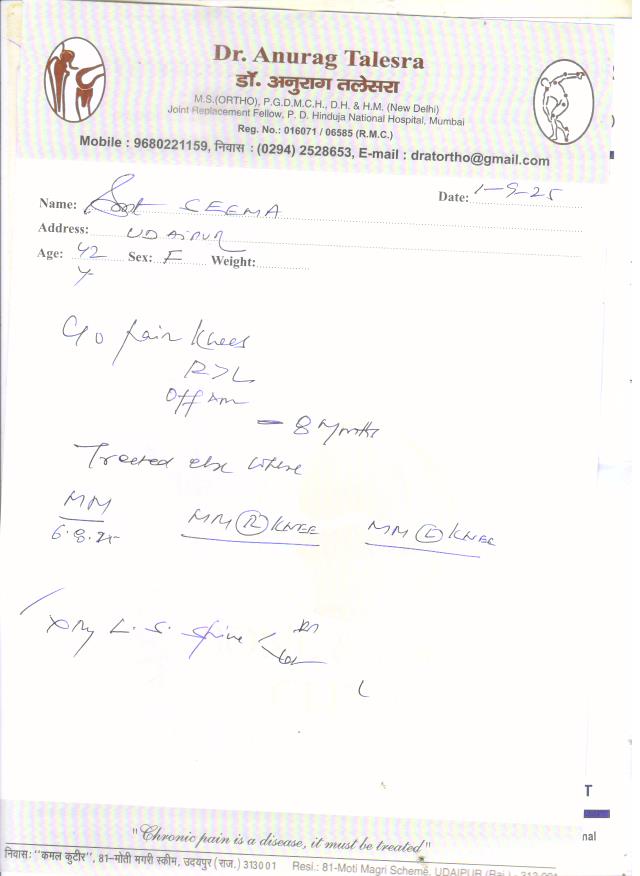 Dr. Anurag Talesra
डॉ. अनुराग तलेसरा
M.S.(ORTHO), P.G.D.M.C.H., D.H. & H.M. (New Delhi)
Joint Replacement Fellow, P. D. Hinduja National Hospital, Mumbai
Reg. No.: 016071 / 06585 (R.M.C.)
Mobile : 9680221159, निवास : (0294) 2528653, E-mail : dratortho@gmail.com
Date: 1-9-25
Name: Smt SEEMA
Address: UDAIPUR
Age: 42 Sex: F Weight:
Y
C/o Pain Knees
R>L
Off An
- 8 Months
Treated else where
MM MM (R) KNEE MM (L) KNEE
6.8.25
Xray L.S. Spine
"Chronic pain is a disease, it must be treated"
निवास: "कमल कुटीर", 81-मोती मगरी स्कीम, उदयपुर (राज.) 313001 Resi.: 81-Moti Magri Scheme, UDAIPUR (Raj.) - 313 001